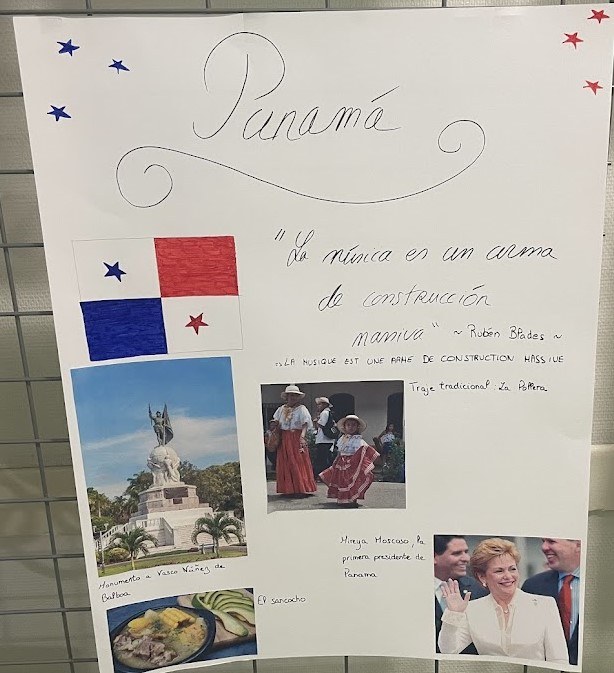 Panamá
"La música es un arma
de construcción
maniva" ~ Rubén Blades ~
↳ LA MUSIQUE EST UNE ARME DE CONSTRUCTION MASSIVE
Traje tradicional : La Pollera
Monumento a Vasco Núñez de
Balboa
Mireya Moscoso, la
primera presidente de
Panama
El sancocho